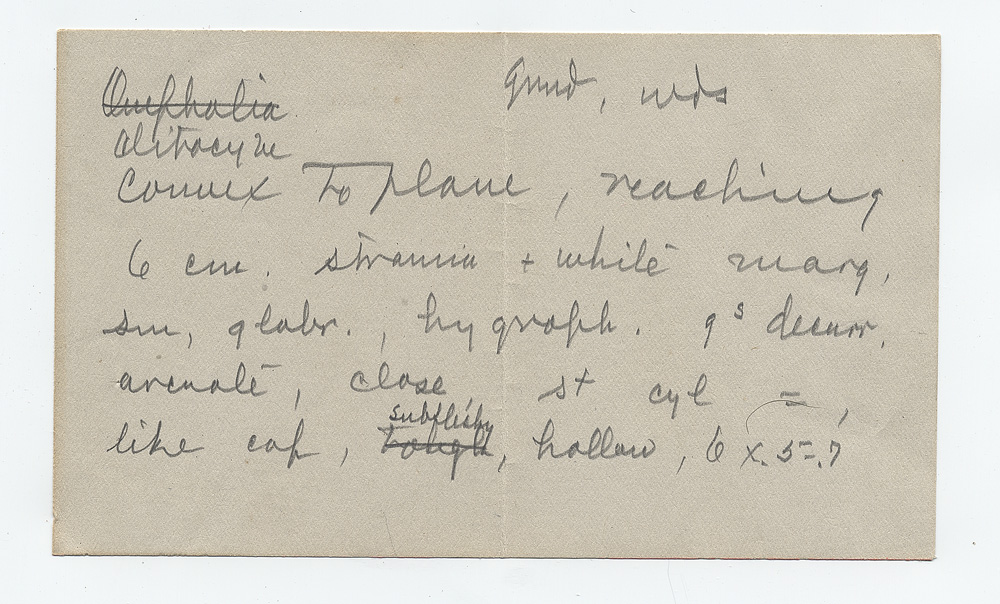 Omphalia Grnd, wds
Clitocybe
Convex to plane, reaching
6 cm. stramin + white marg,
sm, glabr., hygroph. gs decurr,
arcuate, close, st cyl =,
like cap, tough, subfleshy, hollow, 6 x .5-.7